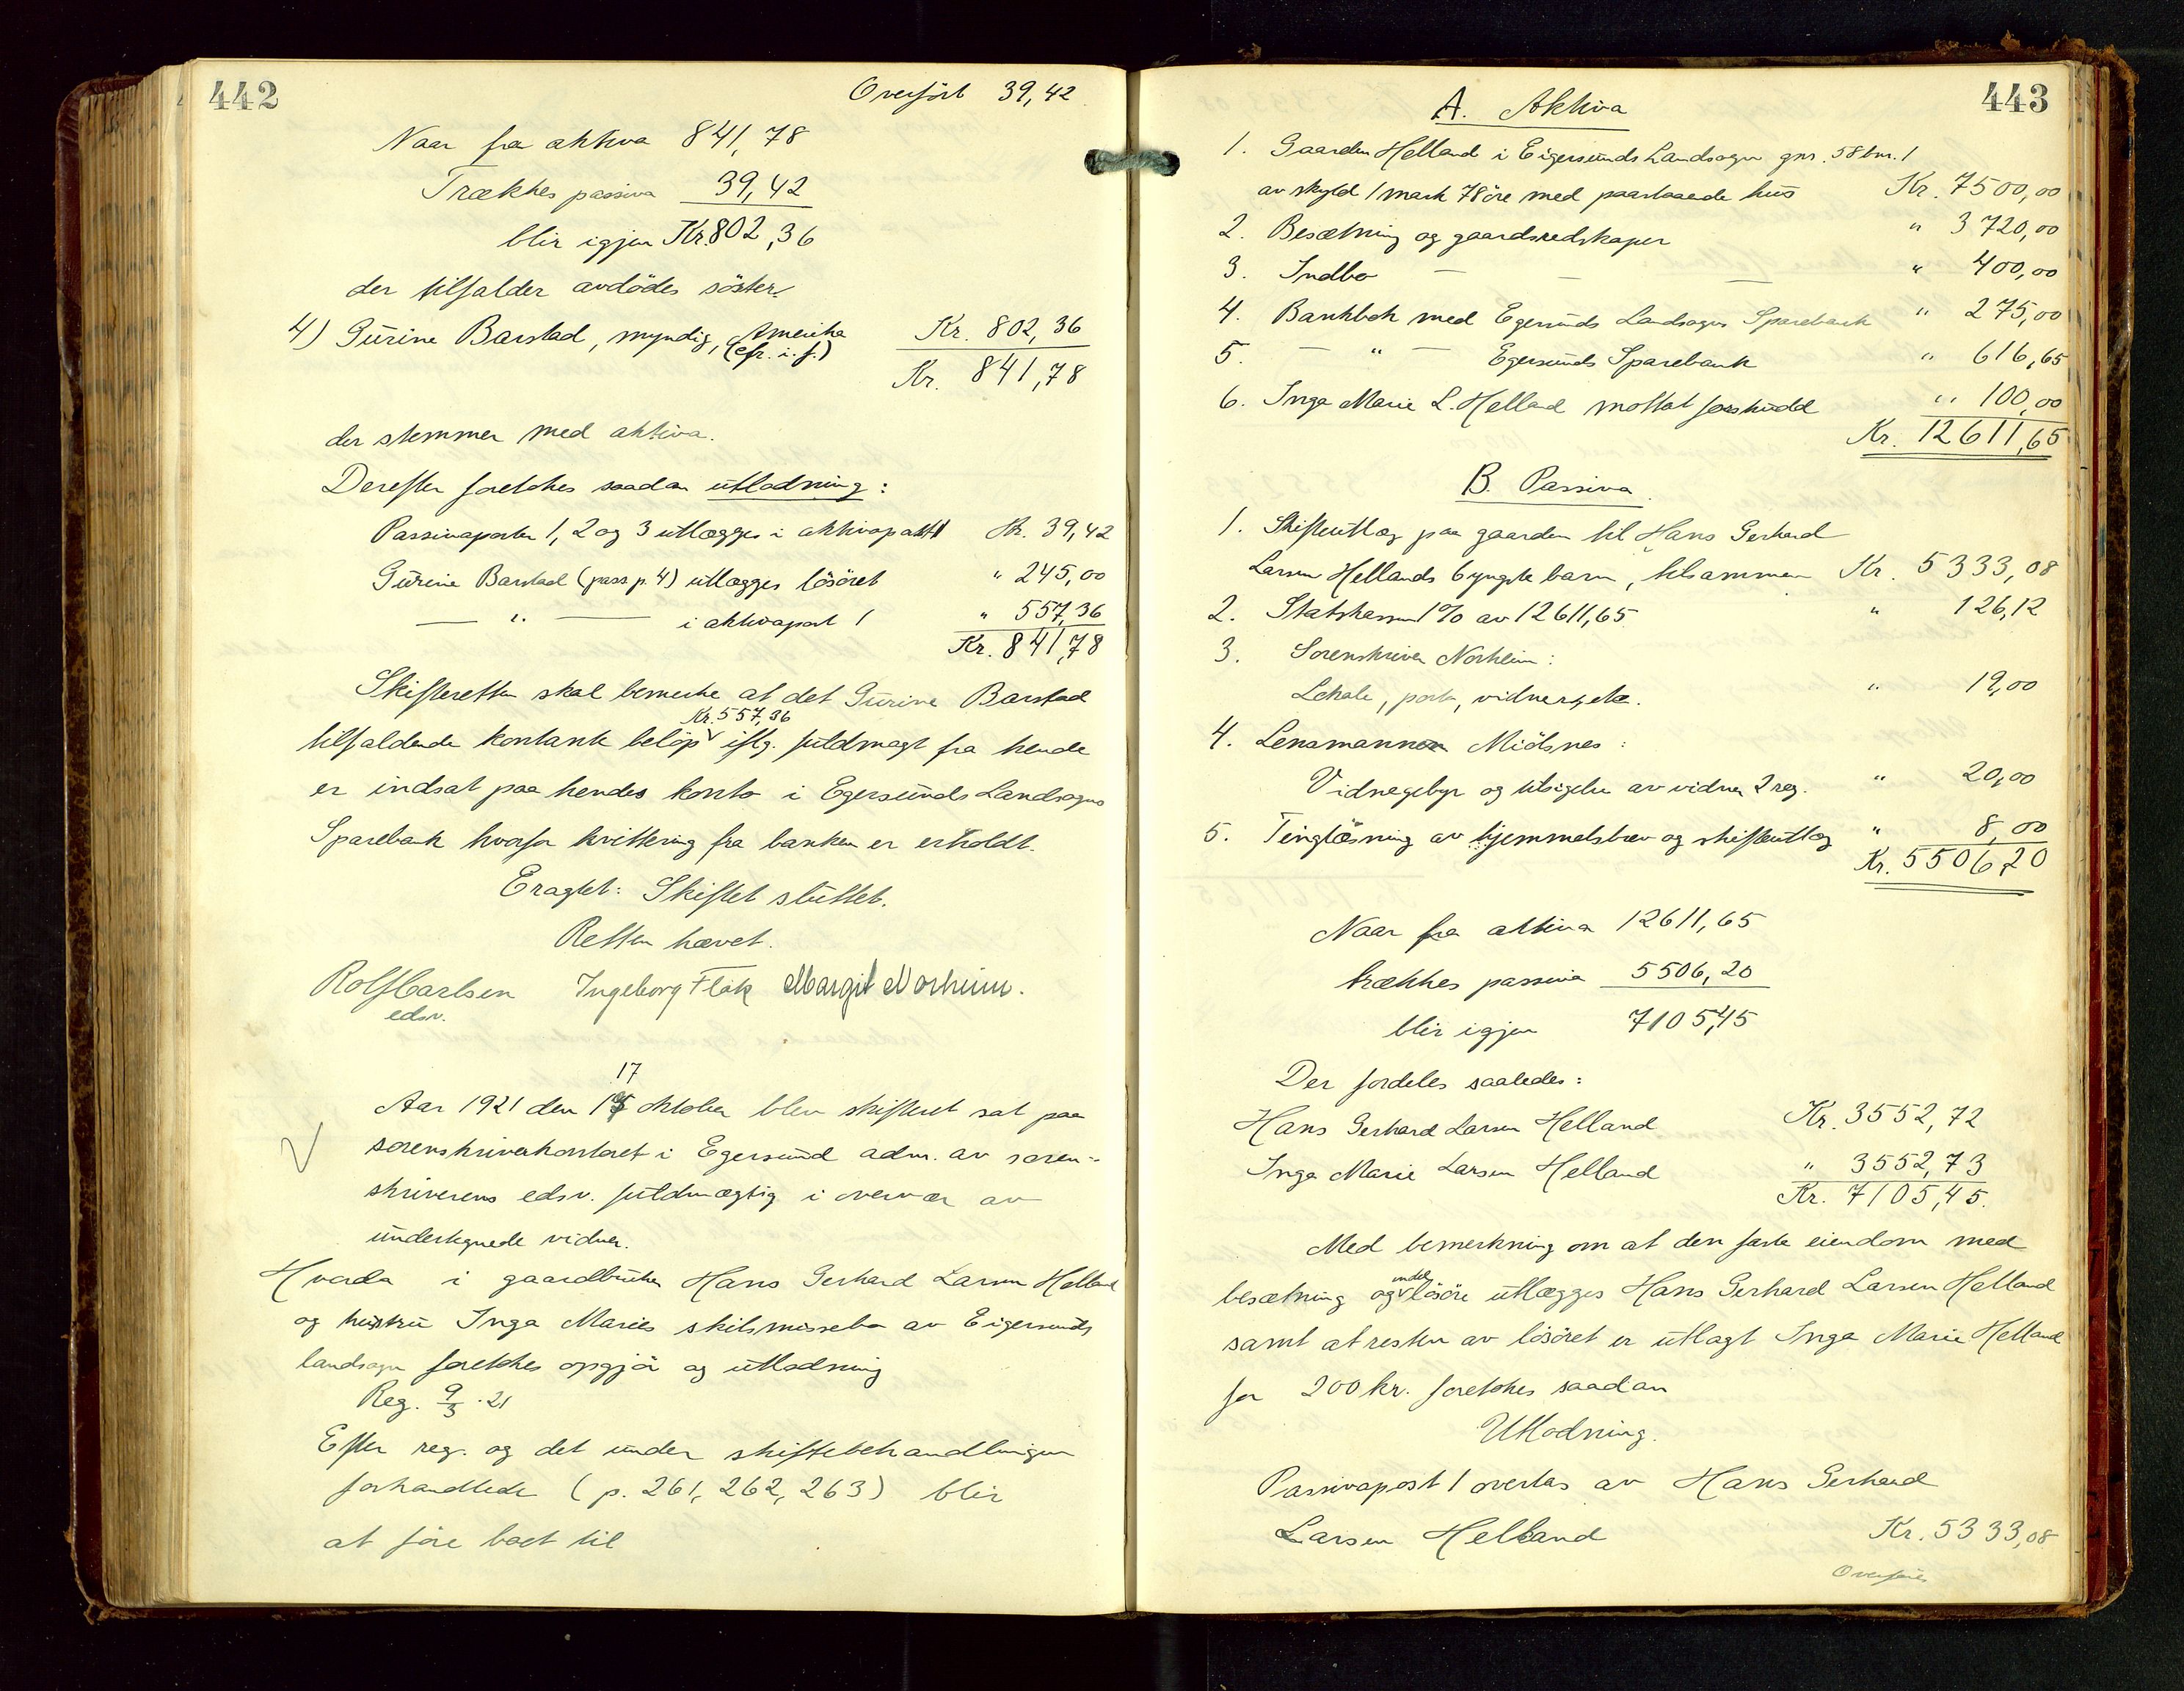 442
Overført 39,42
Naar fra aktiva 841,78
Trækkes passiva 39,42
blir igjen Kr. 802,36
der tilfalder avdødes søster.
4) Gurine Barstad, myndig, Amerika Kr. 802,36
(cfr. i. f.)
Kr. 841,78
der stemmer med aktiva.
Derefter foretokes saadan utlodning:
Passivaposten 1, 2 og 3 utlægges i aktivapost 1 Kr. 39,42
Gurine Barstad (pass. p. 4) utlægges løsøret " 245,00
— " — i aktivapost 1 " 557,36
Kr. 841,78
Skifteretten skal bemerke at det Gurine Barstad
Kr. 557,36
tilfaldende kontante beløp iflg. fuldmagt fra hende
er indsat paa hendes konto i Egersunds Landsogns
Sparebank hvorfor kvittering fra banken er erholdt.
Eragtet: Skiftet sluttet.
Retten hævet.
Rolf Carlsen Ingeborg Fløk Margit Norheim.
edsv.
17
Aar 1921 den 15 oktober blev skifteret sat paa
sorenskriverkontoret i Egersund adm. av soren-
skriverens edsv. fuldmægtig i overvær av
undertegnede vidner.
Hvorda i gaardbruker Hans Gerhard Larsen Helland
og hustru Inga Maries skilsmissebo av Eigersunds
landsogn foretokes opgjør og utlodning
Reg. 9/3 . 21
Efter reg. og det under skiftebehandlingen
forhandlede (p. 261, 262, 263) blir
at føre boet til
443
A. Aktiva
1. Gaarden Helland i Eigersunds Landsogn gnr. 58 bnr. 1
av skyld 1 mark 78 øre med paastaaende hus Kr. 7500,00
2. Besætning og gaardsredskaper " 3720,00
3. Indbo — — — " 400,00
4. Bankbok med Egersunds Landsogns Sparebank " 275,00
5. — " — Egersunds Sparebank " 616,65
6. Inga Marie L. Helland mottat forskudd " 100,00
Kr. 12611,65
B. Passiva.
1. Skifteutlæg paa gaarden til Hans Gerhard
Larsen Hellands 6 yngste barn, tilsammen Kr. 5333,08
2. Statskassen 1% av 12611,65 " 126,12
3. Sorenskriver Norheim:
Lokale, porto, vidner, etc. " 19,00
4. Lensmannen Midsnes:
Vidnegebyr og tilsigelse av vidner 2 reg. " 20,00
5. Tinglæsning av hjemmelsbrev og skifteutlæg " 8,00
Kr. 5506,20
Naar fra aktiva 12611,65
trækkes passiva 5506,20
blir igjen 7105,45
Der fordeles saaledes:
Hans Gerhard Larsen Helland Kr. 3552,72
Inga Marie Larsen Helland " 3552,73
Kr. 7105,45.
Med bemerkning om at den faste eiendom med
indel
besætning og løsøre utlægges Hans Gerhard Larsen Helland
samt at resten av løsøret er utlagt Inga Marie Helland
for 200 kr. foretokes saadan
Utlodning.
Passivapost 1 overtas av Hans Gerhard
Larsen Helland Kr. 5333,08
Overføres